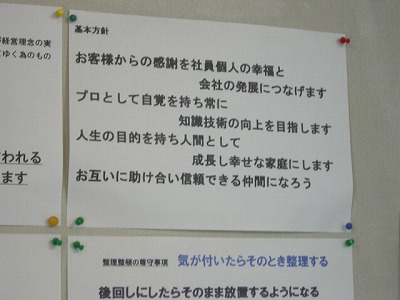 基本方針
お客様からの感謝を社員個人の幸福と
会社の発展につなげます
プロとして自覚を持ち常に
知識技術の向上を目指します
人生の目的を持ち人間として
成長し幸せな家庭にします
お互いに助け合い信頼できる仲間になろう
経営理念の実
てゆく為のもの
われる
ます
整理整頓の尊守事項 気が付いたらそのとき整理する
後回しにしたらそのまま放置するようになる